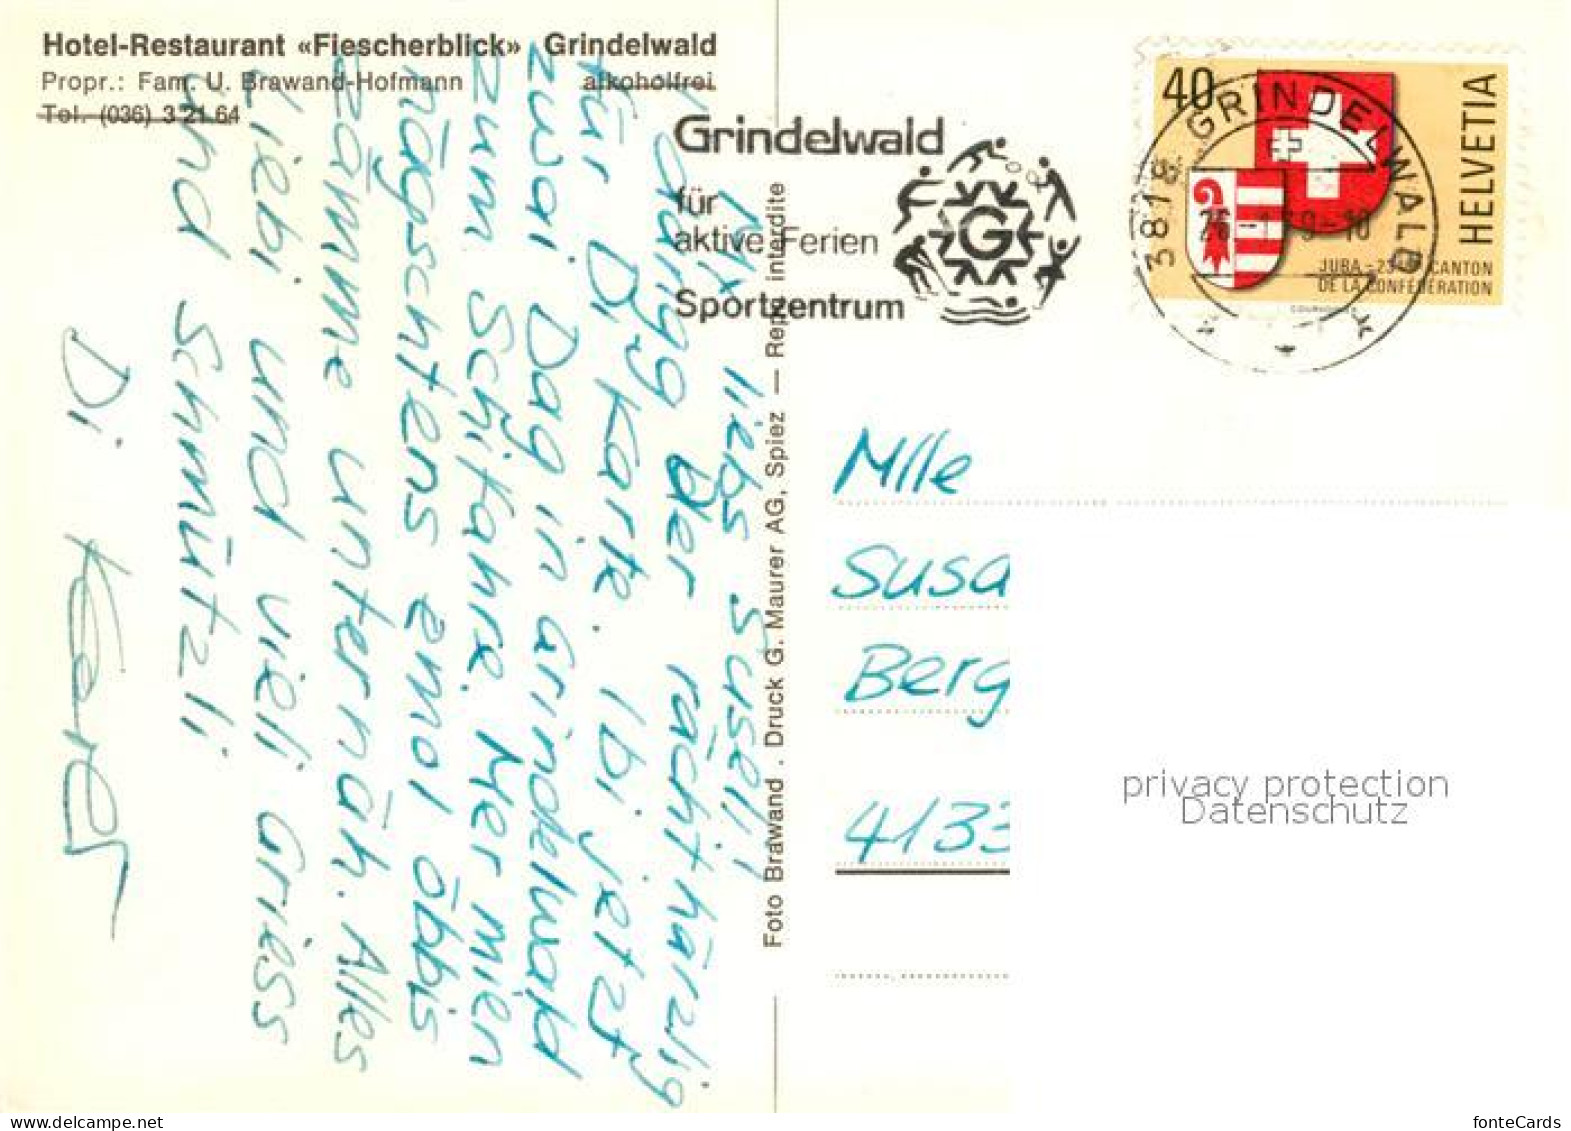 Hotel-Restaurant «Fiescherblick» Grindelwald
Propr.: Fam. U. Brawand-Hofmann alkoholfrei
Tel. (036) 3 21 64
Grindelwald
für
aktive Ferien
Sportzentrum
G
40
HELVETIA
JURA - 23e CANTON
DE LA CONFÉDÉRATION
3818 GRINDELWALD
liebs Suseli,
dangg der rächt härzlig
für Di Karte. I bi jetzt
zwai Dag in Grindelwald
zum Schifahre. Mer mien
nägschtens emol öbbis
zämme unternäh. Alles
Liebi und vieli Griess
und Schmützli
Di
Foto Brawand . Druck G. Maurer AG, Spiez — Repr. interdite
Mlle
Susa
Berg
4133
privacy protection
Datenschutz
www.delcampe.net
fonteCards